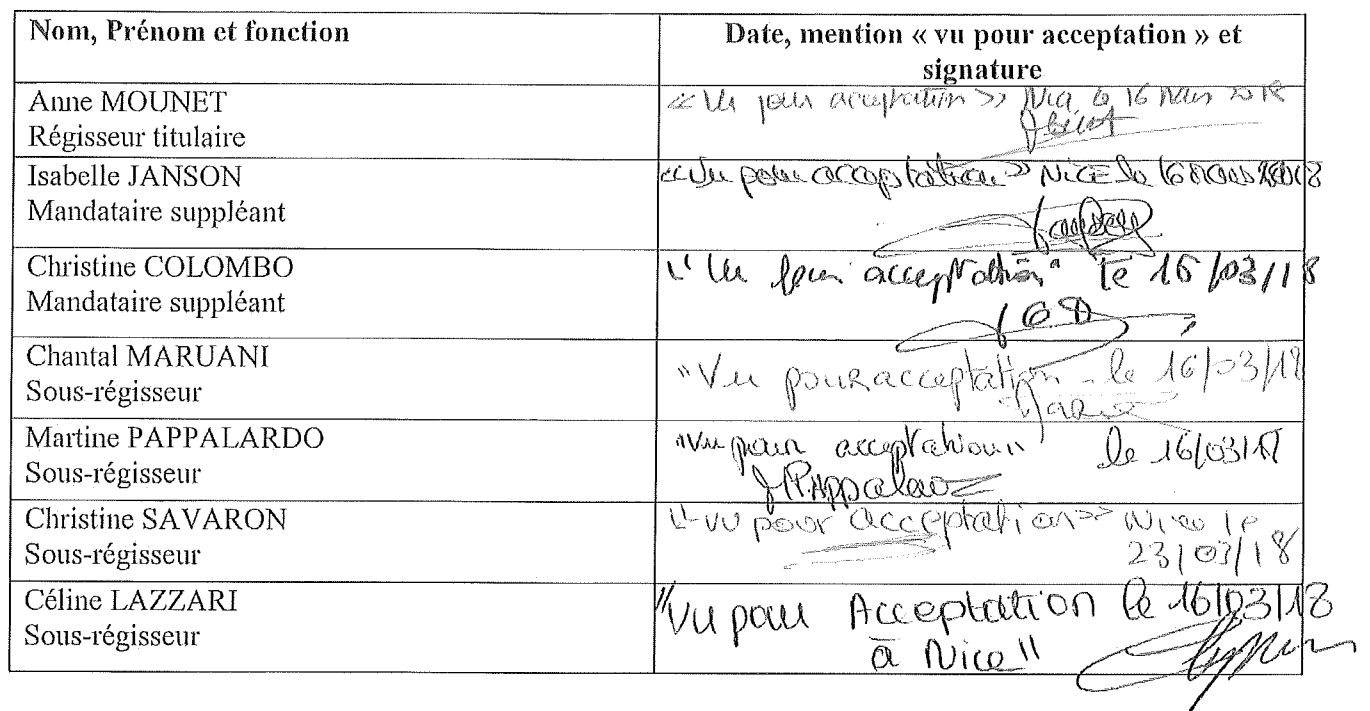 Nom, Prénom et fonction
Date, mention « vu pour acceptation » et
signature
Anne MOUNET
Régisseur titulaire
« Vu pour acceptation » Nice le 16 Mars 2018
Isabelle JANSON
Mandataire suppléant
« Vu pour acceptation » Nice le 16 Mars 2018
Christine COLOMBO
Mandataire suppléant
"Vu pour acceptation" le 16/03/18
Chantal MARUANI
Sous-régisseur
"Vu pour acceptation - le 16/03/18
Martine PAPPALARDO
Sous-régisseur
"Vu pour acceptation" le 16/03/18
Christine SAVARON
Sous-régisseur
"vu pour acceptation" Nice le
23/03/18
Céline LAZZARI
Sous-régisseur
"Vu pour Acceptation le 16/03/18
à Nice"